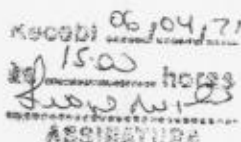 Recebi 06/04/71
às 15:00 horas
ASSINATURA